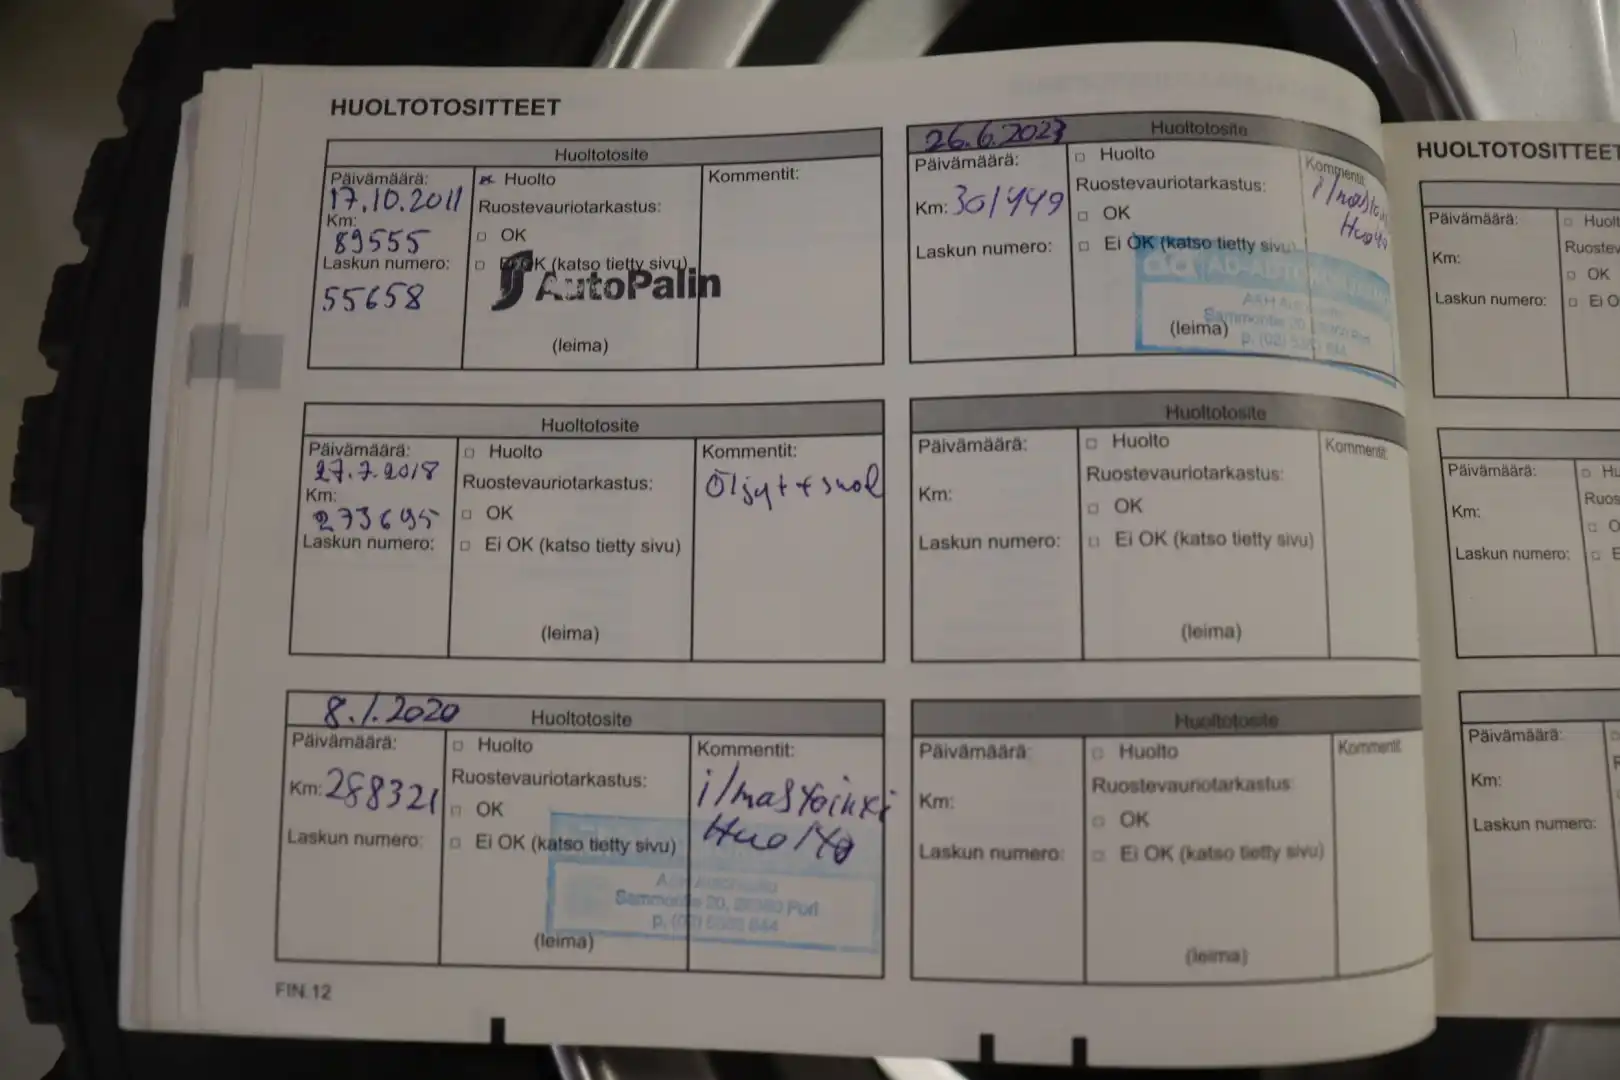 HUOLTOTOSITTEET
Huoltotosite
Päivämäärä:
17.10.2011
Km:
89555
Laskun numero:
55658
Huolto
Ruostevauriotarkastus:
OK
OK (katso tietty sivu)
AutoPalin
(leima)
Kommentit:
Huoltotosite
Päivämäärä:
27.7.2018
Km:
273695
Laskun numero:
Huolto
Ruostevauriotarkastus:
OK
Ei OK (katso tietty sivu)
(leima)
Kommentit:
Öljyt + suod
8.1.2020 Huoltotosite
Päivämäärä:
Km: 288321
Laskun numero:
Huolto
Ruostevauriotarkastus:
OK
Ei OK (katso tietty sivu)
Sammontie 20, Pori
(leima)
Kommentit:
ilmastoinki
Huolto
FIN.12
26.6.2023 Huoltotosite
Päivämäärä:
Km: 301449
Laskun numero:
Huolto
Ruostevauriotarkastus:
OK
Ei OK (katso tietty sivu)
Sammontie 20
(leima)
Kommentit:
Huolto
Huoltotosite
Päivämäärä:
Km:
Laskun numero:
Huolto
Ruostevauriotarkastus:
OK
Ei OK (katso tietty sivu)
(leima)
Kommentit:
Huoltotosite
Päivämäärä:
Km:
Laskun numero:
Huolto
Ruostevauriotarkastus:
OK
Ei OK (katso tietty sivu)
(leima)
Kommentit
HUOLTOTOSITTEET
Päivämäärä:
Km:
Laskun numero:
Huolt
Ruostev
OK
Ei O
Päivämäärä:
Km:
Laskun numero:
Hu
Ruos
O
E
Päivämäärä:
Km:
Laskun numero: